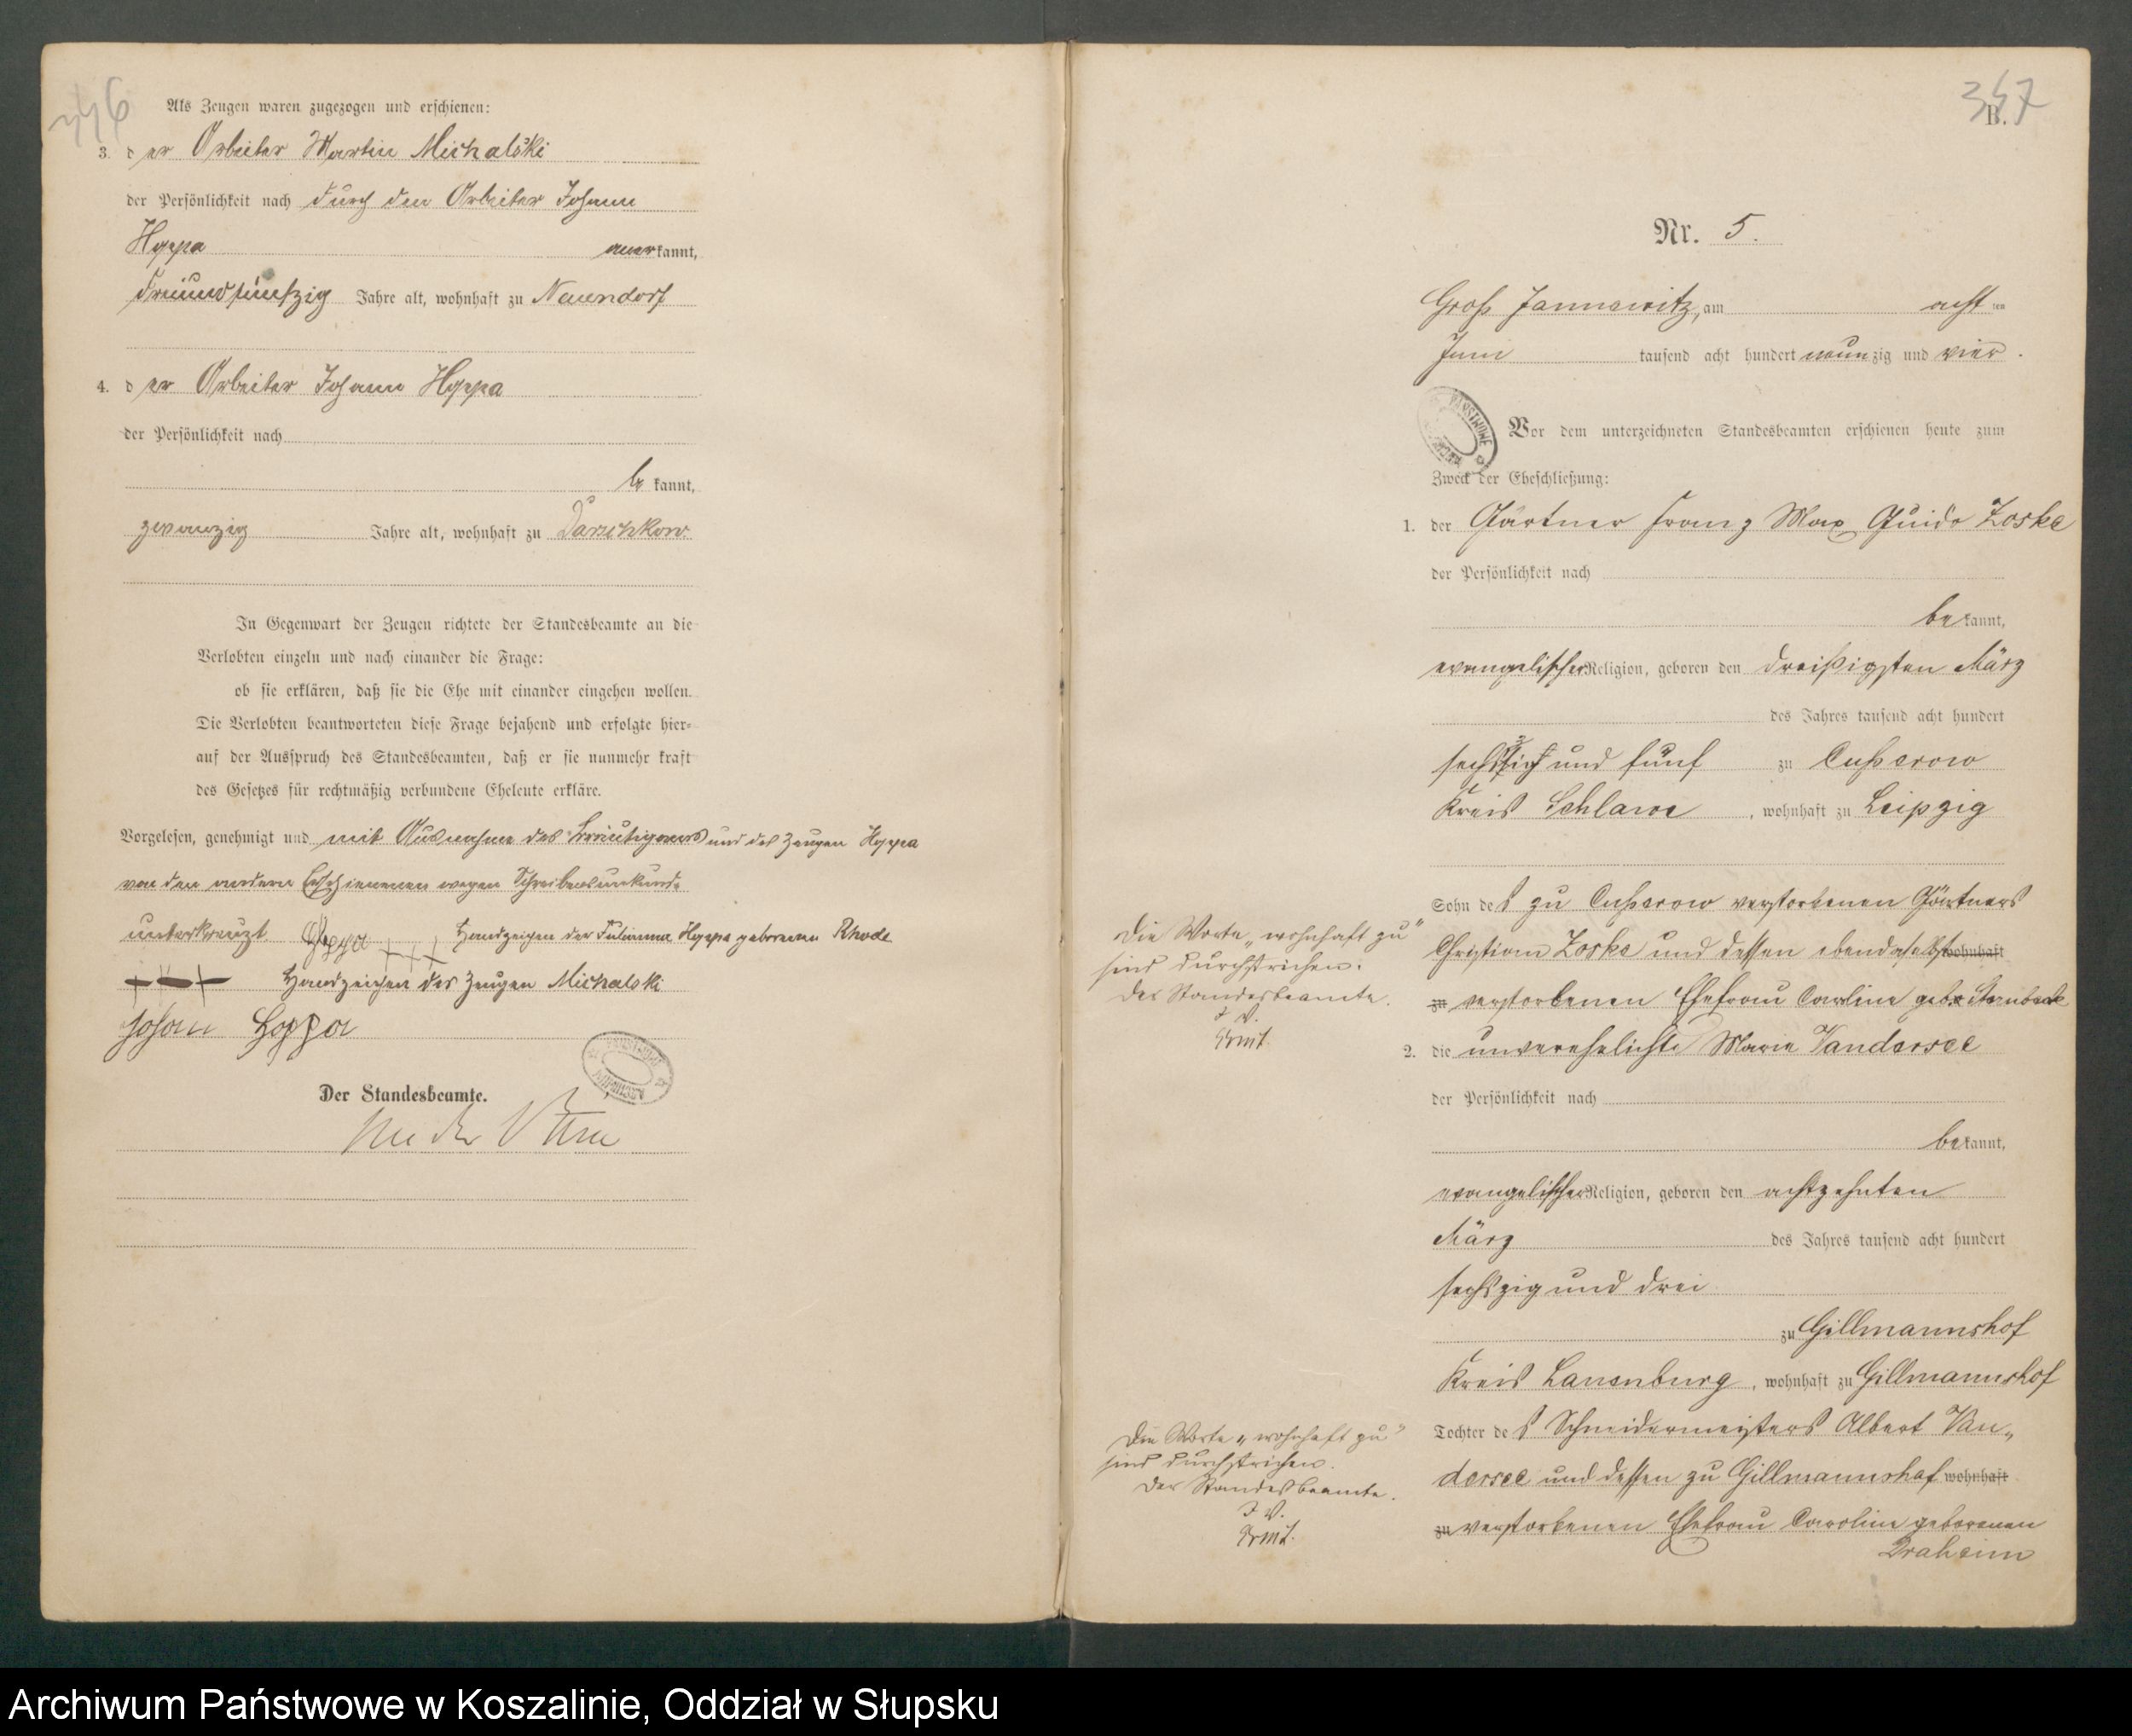 Als Zeugen waren zugezogen und erschienen:
3. der Arbeiter Martin Michalski
der Persönlichkeit nach durch den Arbeiter Johann
Hyppa anerkannt,
dreiundfünfzig Jahre alt, wohnhaft zu Neuendorf
4. der Arbeiter Johann Hyppa
der Persönlichkeit nach
bekannt,
zwanzig Jahre alt, wohnhaft zu Darschkow.
In Gegenwart der Zeugen richtete der Standesbeamte an die
Verlobten einzeln und nach einander die Frage:
ob sie erklären, daß sie die Ehe mit einander eingehen wollen.
Die Verlobten beantworteten diese Frage bejahend und erfolgte hier-
auf der Ausspruch des Standesbeamten, daß er sie nunmehr kraft
des Gesetzes für rechtmäßig verbundene Eheleute erkläre.
Vorgelesen, genehmigt und mit Ausnahme des Bräutigams und des Zeugen Hyppa
von den andern Erschienenen wegen Schreibensunkunde
unterkreuzt +++ Handzeichen der Julianna Hyppa geborenen Rhode
+++ Handzeichen des Zeugen Michalski
Johann Hoppa
Der Standesbeamte.
347
B.
Nr. 5.
Groß Jannewitz, am acht ten
Juni tausend acht hundert neunzig und vier.
Vor dem unterzeichneten Standesbeamten erschienen heute zum
Zweck der Eheschließung:
1. der Gärtner Franz Max Guido Zoske
der Persönlichkeit nach
bekannt,
evangelischer Religion, geboren den dreißigsten März
des Jahres tausend acht hundert
sechszig und fünf zu Cußerow
Kreis Schlawe, wohnhaft zu Leipzig
Sohn des zu Cußerow verstorbenen Gärtners
Christian Zoske und dessen ebendaselbst wohnhaft
zu verstorbenen Ehefrau Carline geb.
2. die unverehelichte Marie Vandersee
der Persönlichkeit nach
bekannt,
evangelischer Religion, geboren den achtzehnten
März des Jahres tausend acht hundert
sechszig und drei
zu Gillmannshof
Kreis Lauenburg, wohnhaft zu Gillmannshof
Tochter des Schneidermeisters Albert Van„
dersee und dessen zu Gillmannshof wohnhaft
zu verstorbenen Ehefrau Caroline geborenen
Draheim
Die Worte „wohnhaft zu"
sind durchstrichen.
Der Standesbeamte.
I. V.
Die Worte „wohnhaft zu"
sind durchstrichen.
Der Standesbeamte.
I. V.
Archiwum Państwowe w Koszalinie, Oddział w Słupsku